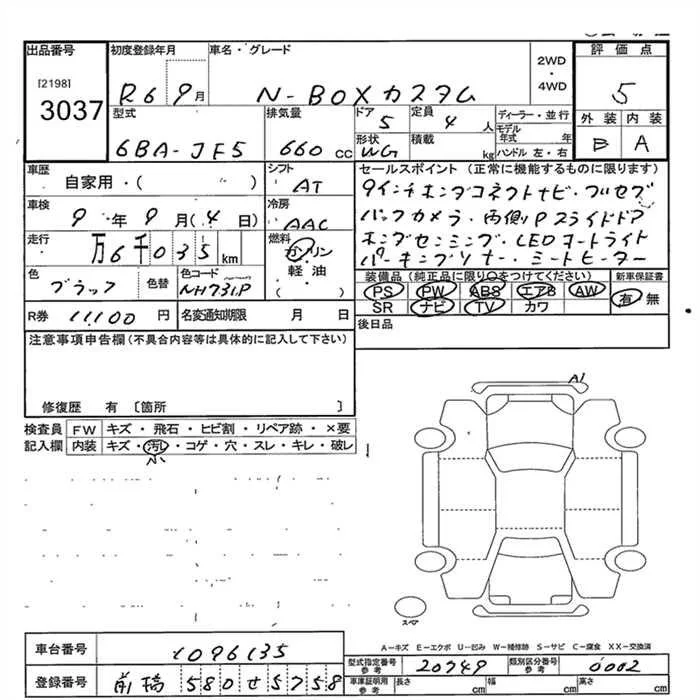 出品番号 初度登録年月 車名・グレード 2WD・4WD 評価点
[2198] 3037 R6 9月 N-BOXカスタム 5
型式 排気量 ドア 定員 ディーラー・並行 外装 内装
6BA-JF5 660 cc 5 4人 モデル年式 年 B A
形状 積載 ハンドル 左・右
WG kg
車歴 シフト セールスポイント (正常に機能するものに限ります)
自家用・( ) AT 9インチホンダコネクトナビ・フルセグ
車検 冷房 バックカメラ・両側Pスライドドア
9年9月(4日) AAC ホンダセンシング・LEDオートライト
走行 燃料 パーキングソナー・シートヒーター
万6千035km ガソリン 軽・油 ( )
色 色替 色コード 装備品(純正品に限り○をつけてください) 新車保証書
ブラック NH731P PS PW ABS エアB AW 有・無
SR ナビ TV カワ
R券 11100円 名変通知期限 月 日 後日品
注意事項申告欄(不具合内容等は具体的に記入して下さい)
修復歴 有 〔箇所 〕
検査員記入欄 FW キズ・飛石・ヒビ割・リペア跡・×要
内装 キズ・汚れ・コゲ・穴・スレ・キレ・破レ
小
A1
スペア
A-キズ E-エクボ U-凹み W-補修跡 S-サビ C-腐食 XX-交換済
車台番号 1096135 型式指定番号 参考 20749 類別区分番号 参考 0002
登録番号 前橋 580せ5758 車庫証明用 参考 長さ cm 幅 cm 高さ cm